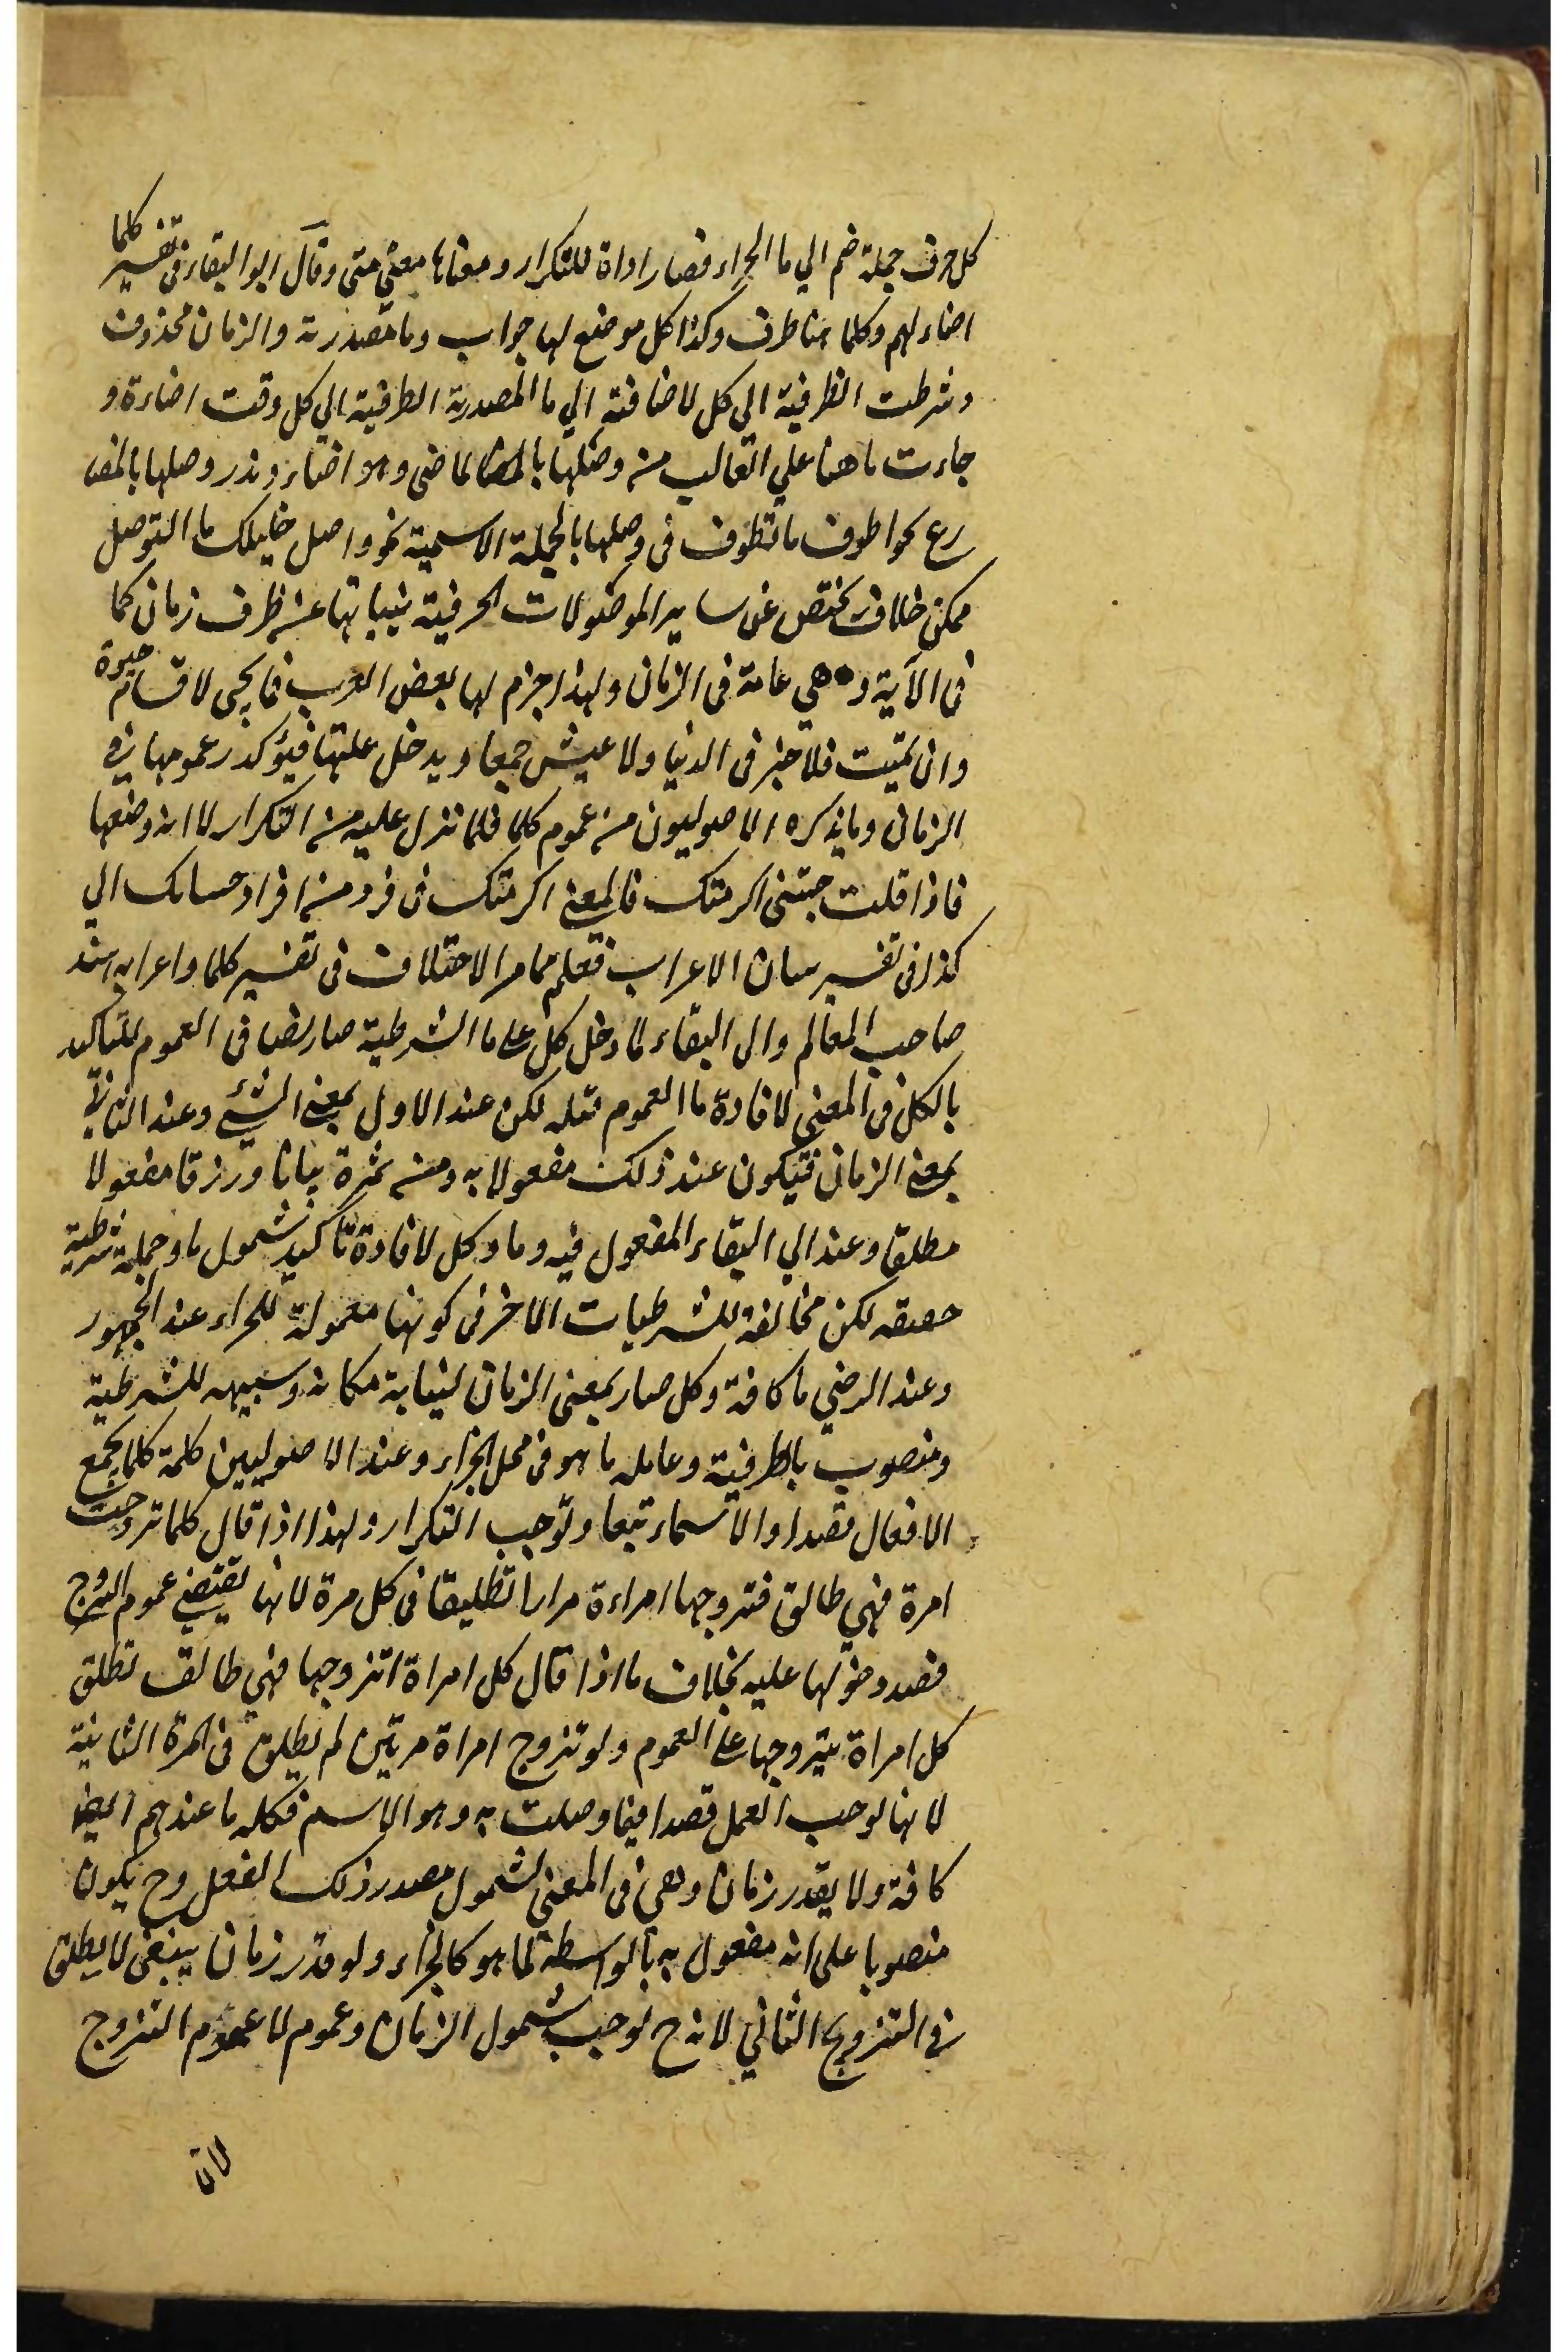 كل حرف جملة ضم الي ما الجزاء فصار اداة للتكرار ومعناها معني متى وقال ابو البقاء في تفسير كلما
اضاء لهم وكلما هنا ظرف وكذا كل موضع لها جواب وما مصدرية والزمان محذوف
وشرطت الظرفية الي كل لاضافته الي ما المصدرية الظرفية الي كل وقت اضاءة و
جاءت ما هنا علي الغالب من وصلها بالماضي وهو اضاء وندر وصلها بالمضا
رع نحو اطوف ما تطوف في وصلها بالجملة الاسمية نحو واصل خليلك ما التوصل
ممكن خلاف تختص عن ساير الموصولات الحرفية بنيابتها عن ظرف زمان كما
في الآية و هي عامة في الزمان ولهذا جزم لها بعض العرب فما تحى لا تسام حيوة
وان تميت فلا خير في الدنيا ولا عيش جمعا ويدخل عليها فيؤكد عمومها في
الزماني وما يذكره الاصوليون من عموم كلما فلما نزل عليه من التكرار لا انه وضعها
فاذا قلت جئتنى اكرمتك فالمعنى اكرمتك في فرد من افراد حسانك الي
كذا في تفسير الاعراب فتعلم مما مر الاختلاف في تفسير كلما واعرابه اسند
صاحب المعالم والى البقاء لما دخل كل على ما الشرطية صار نصا في العموم للتاكيد
بالكل في المعنى لافادة ما العموم قبله لكن عند الاول بمعنى الشئ وعند الثاني
بمعنى الزمان فتيكون عند ذلك مفعولا به ومن ثمرة بيانا ورزقا مفعولا
مطلقا وعند ابي البقاء المفعول فيه وما وكل لافادة تاكيد شمول ما وجملة شرطية
حقيقه لكن مخالفة للشرطيات الاخر في كونها معمولة للجزاء عند الجمهور
وعند الرضي ما كافة وكل صار بمعنى الزمان لنيابة مكانه وشبيهه للشرطية
ومنصوب بالظرفية وعامله ما هو في محل الجزاء وعند الاصوليين كلمة كلما تجمع
الافعال قصدا والاسماء تبعا وتوجب التكرار ولهذا اذا قال كلما تزوجت
امرة فهي طالق فتزوجها امراءة مرارا تطليقا في كل مرة لانها تقتضي عموم التزوج
قصد دخولها عليه بخلاف ما اذا قال كل امراة اتزوجها فهي طالق تطلق
كل امراة يتزوجها على العموم ولو تزوج امراة مرتين لم يطلق في المرة الثانية
لانها توجب العمل قصدا فيما وصلت به وهو الاسم فكله ما عندهم ايضا
كافة ولا يقدر زمان وهي في المعنى لشمول مصدر ذلك الفعل وح يكون
منصوبا على انه مفعول به بالواسطة لما هو كالجزاء ولو قدر زمان ينبغى لا يطلق
في التزويج الثاني لانه ح توجب شمول الزمان وعموم لا عموم التزوج
لان